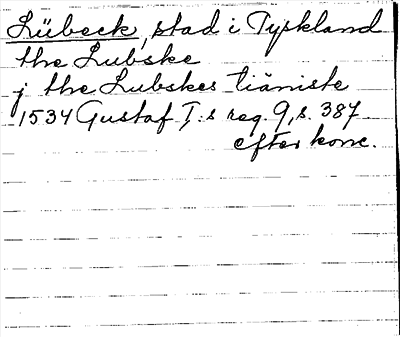 Lübeck, stad i Tyskland
the Lubske
j the Lubskes tiäniste
1534 Gustaf I:s reg. 9, s. 387
efter konc.